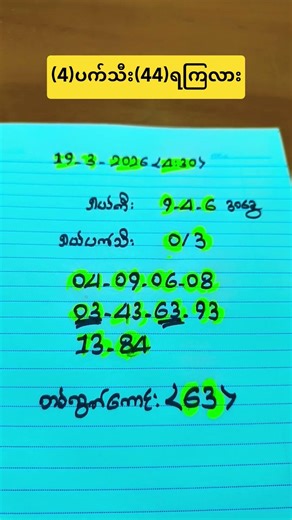 (4)ပက်သီး(44)ရကြလား
19-3-2026<4:30>
9-4-6 ဒဲ့ခွေ
0/3
04-09-06-08
03-43-63-93
13-84
တစ်ကွက်ကောင်း <63>